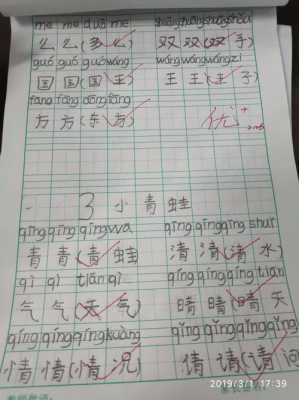 me me duō me shuāngshuāngshuāngshǒu
么 么(多 么) 双 双(双 手)
guó guó guówáng wángwángwángzi
国 国(国 王) 王 王(王 子)
fāng fāng dōngfāng
方 方(东 方) 优+
3 小 青 蛙
qīng qīng qīngwā qīng qīngqīng shuǐ
青 青(青 蛙) 清 清(清 水)
qì qì tiān qì qíng qíngqíng tiān
气 气(天 气) 晴 晴(晴 天
qíng qíngqíngkuàng qǐng qǐngqǐng
情 情(情 况) 请 请(请 问
2019/3/1 17:39